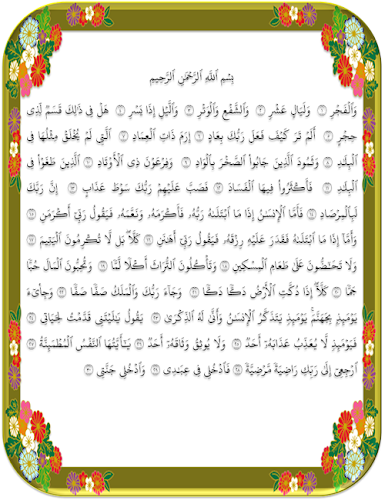 بِسْمِ ٱللَّهِ ٱلرَّحْمَٰنِ ٱلرَّحِيمِ
وَٱلْفَجْرِ ١ وَلَيَالٍ عَشْرٍ ٢ وَٱلشَّفْعِ وَٱلْوَتْرِ ٣ وَٱلَّيْلِ إِذَا يَسْرِ ٤ هَلْ فِى ذَٰلِكَ قَسَمٌ لِّذِى
حِجْرٍ ٥ أَلَمْ تَرَ كَيْفَ فَعَلَ رَبُّكَ بِعَادٍ ٦ إِرَمَ ذَاتِ ٱلْعِمَادِ ٧ ٱلَّتِى لَمْ يُخْلَقْ مِثْلُهَا فِى
ٱلْبِلَٰدِ ٨ وَثَمُودَ ٱلَّذِينَ جَابُوا۟ ٱلصَّخْرَ بِٱلْوَادِ ٩ وَفِرْعَوْنَ ذِى ٱلْأَوْتَادِ ١٠ ٱلَّذِينَ طَغَوْا۟ فِى
ٱلْبِلَٰدِ ١١ فَأَكْثَرُوا۟ فِيهَا ٱلْفَسَادَ ١٢ فَصَبَّ عَلَيْهِمْ رَبُّكَ سَوْطَ عَذَابٍ ١٣ إِنَّ رَبَّكَ
لَبِٱلْمِرْصَادِ ١٤ فَأَمَّا ٱلْإِنسَٰنُ إِذَا مَا ٱبْتَلَىٰهُ رَبُّهُۥ فَأَكْرَمَهُۥ وَنَعَّمَهُۥ فَيَقُولُ رَبِّىٓ أَكْرَمَنِ ١٥
وَأَمَّآ إِذَا مَا ٱبْتَلَىٰهُ فَقَدَرَ عَلَيْهِ رِزْقَهُۥ فَيَقُولُ رَبِّىٓ أَهَٰنَنِ ١٦ كَلَّا ۖ بَل لَّا تُكْرِمُونَ ٱلْيَتِيمَ ١٧
وَلَا تَحَٰٓضُّونَ عَلَىٰ طَعَامِ ٱلْمِسْكِينِ ١٨ وَتَأْكُلُونَ ٱلتُّرَاثَ أَكْلًا لَّمًّا ١٩ وَتُحِبُّونَ ٱلْمَالَ حُبًّا
جَمًّا ٢٠ كَلَّآ إِذَا دُكَّتِ ٱلْأَرْضُ دَكًّا دَكًّا ٢١ وَجَآءَ رَبُّكَ وَٱلْمَلَكُ صَفًّا صَفًّا ٢٢ وَجِا۟ىٓءَ
يَوْمَئِذٍۭ بِجَهَنَّمَ ۚ يَوْمَئِذٍ يَتَذَكَّرُ ٱلْإِنسَٰنُ وَأَنَّىٰ لَهُ ٱلذِّكْرَىٰ ٢٣ يَقُولُ يَٰلَيْتَنِى قَدَّمْتُ لِحَيَاتِى ٢٤
فَيَوْمَئِذٍ لَّا يُعَذِّبُ عَذَابَهُۥٓ أَحَدٌ ٢٥ وَلَا يُوثِقُ وَثَاقَهُۥٓ أَحَدٌ ٢٦ يَٰٓأَيَّتُهَا ٱلنَّفْسُ ٱلْمُطْمَئِنَّةُ ٢٧
ٱرْجِعِىٓ إِلَىٰ رَبِّكِ رَاضِيَةً مَّرْضِيَّةً ٢٨ فَٱدْخُلِى فِى عِبَٰدِى ٢٩ وَٱدْخُلِى جَنَّتِى ٣٠